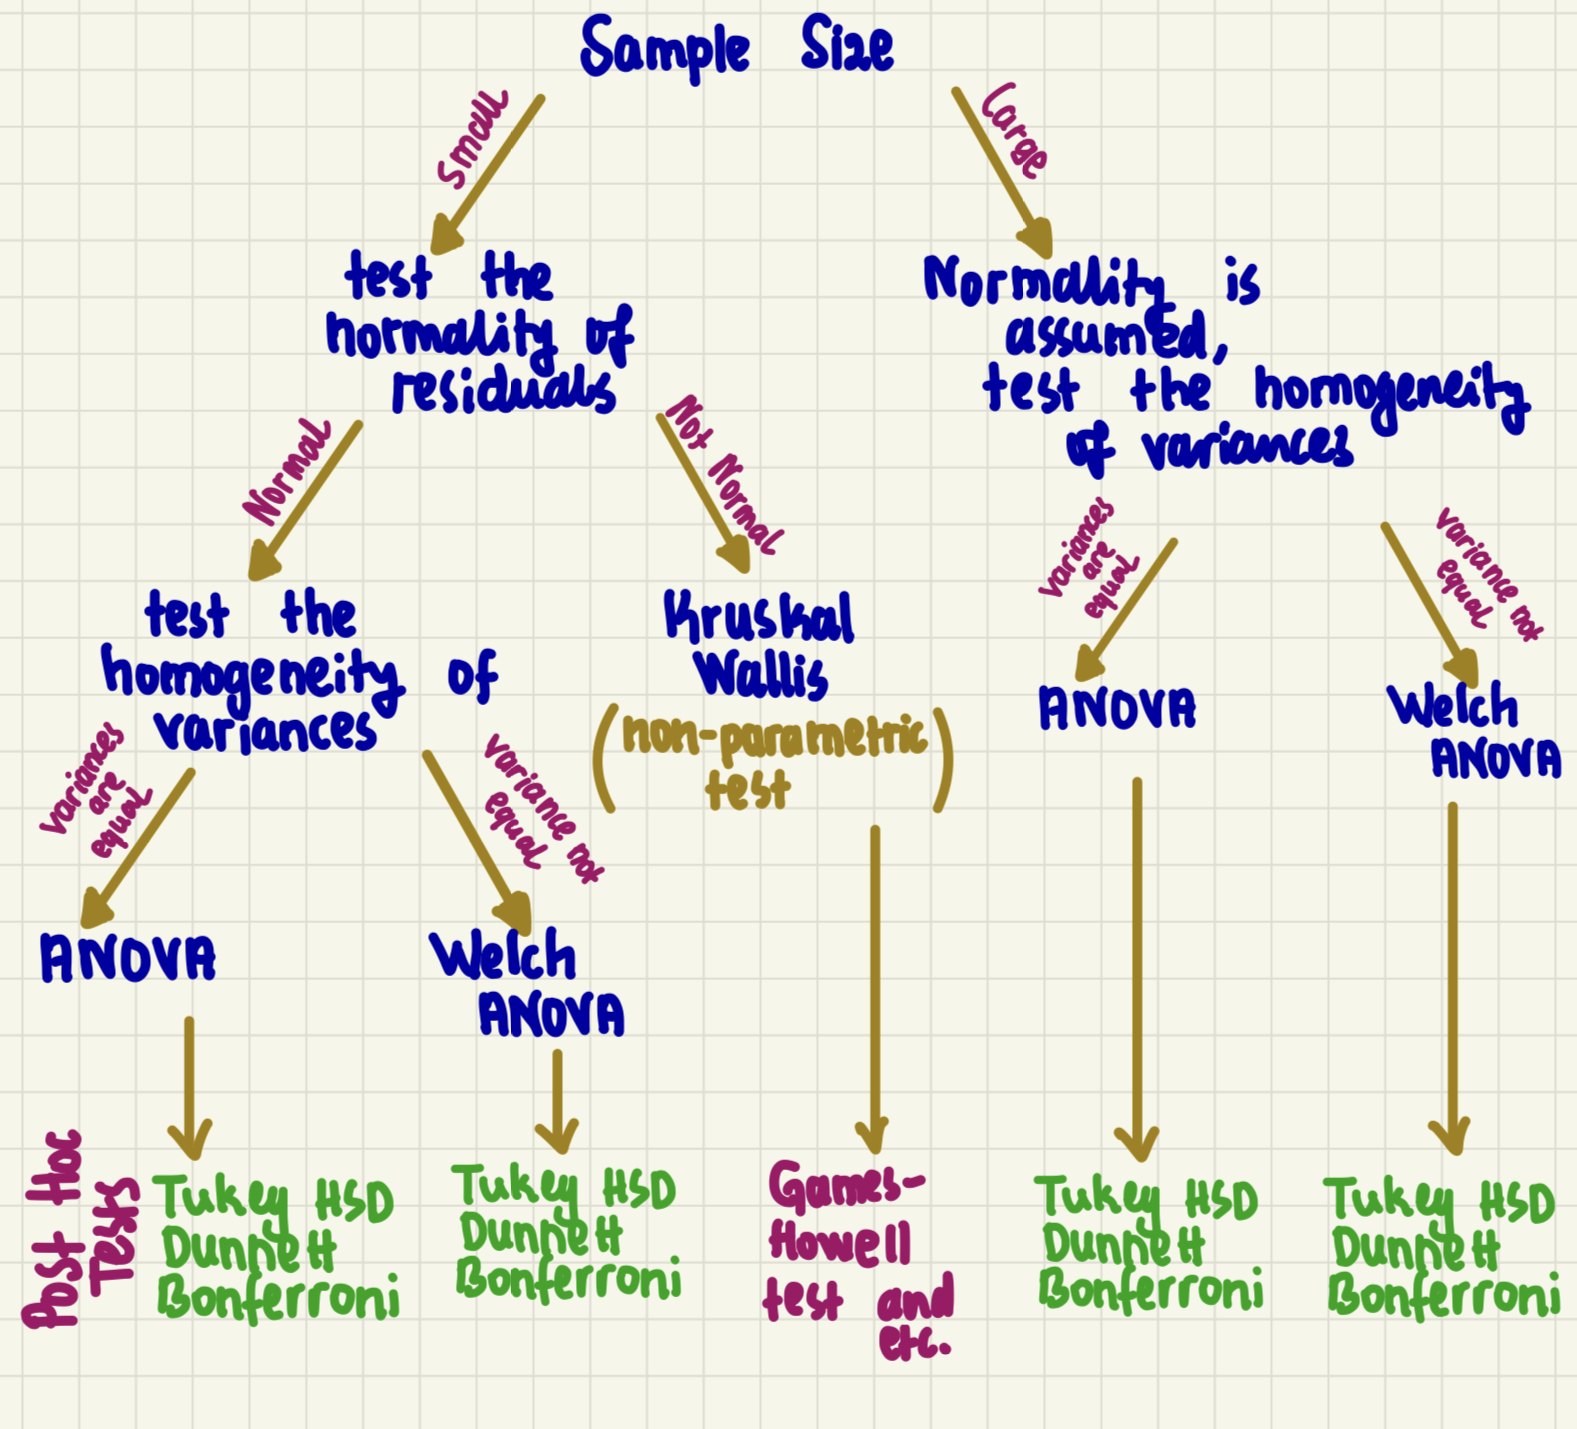 Sample Size
small
Large
test the
normality of
residuals
Normality is
assumed,
test the homogeneity
of variances
Normal
Not Normal
variances
are
equal
variance not
equal
test the
homogeneity of
variances
Kruskal
Wallis
(non-parametric
test)
ANOVA
Welch
ANOVA
variances
are
equal
variance not
equal
ANOVA
Welch
ANOVA
Post Hoc
Tests
Tukey HSD
Dunnett
Bonferroni
Tukey HSD
Dunnett
Bonferroni
Games-
Howell
test and
etc.
Tukey HSD
Dunnett
Bonferroni
Tukey HSD
Dunnett
Bonferroni